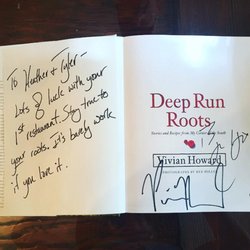 To Heather & Tyler -
Lots of luck with your
1st restaurant. Stay true to
your roots. It's barely work
if you love it.
Deep Run
Roots
Stories and Recipes from My Corner of the South
Vivian Howard
PHOTOGRAPHS BY REX MILLER